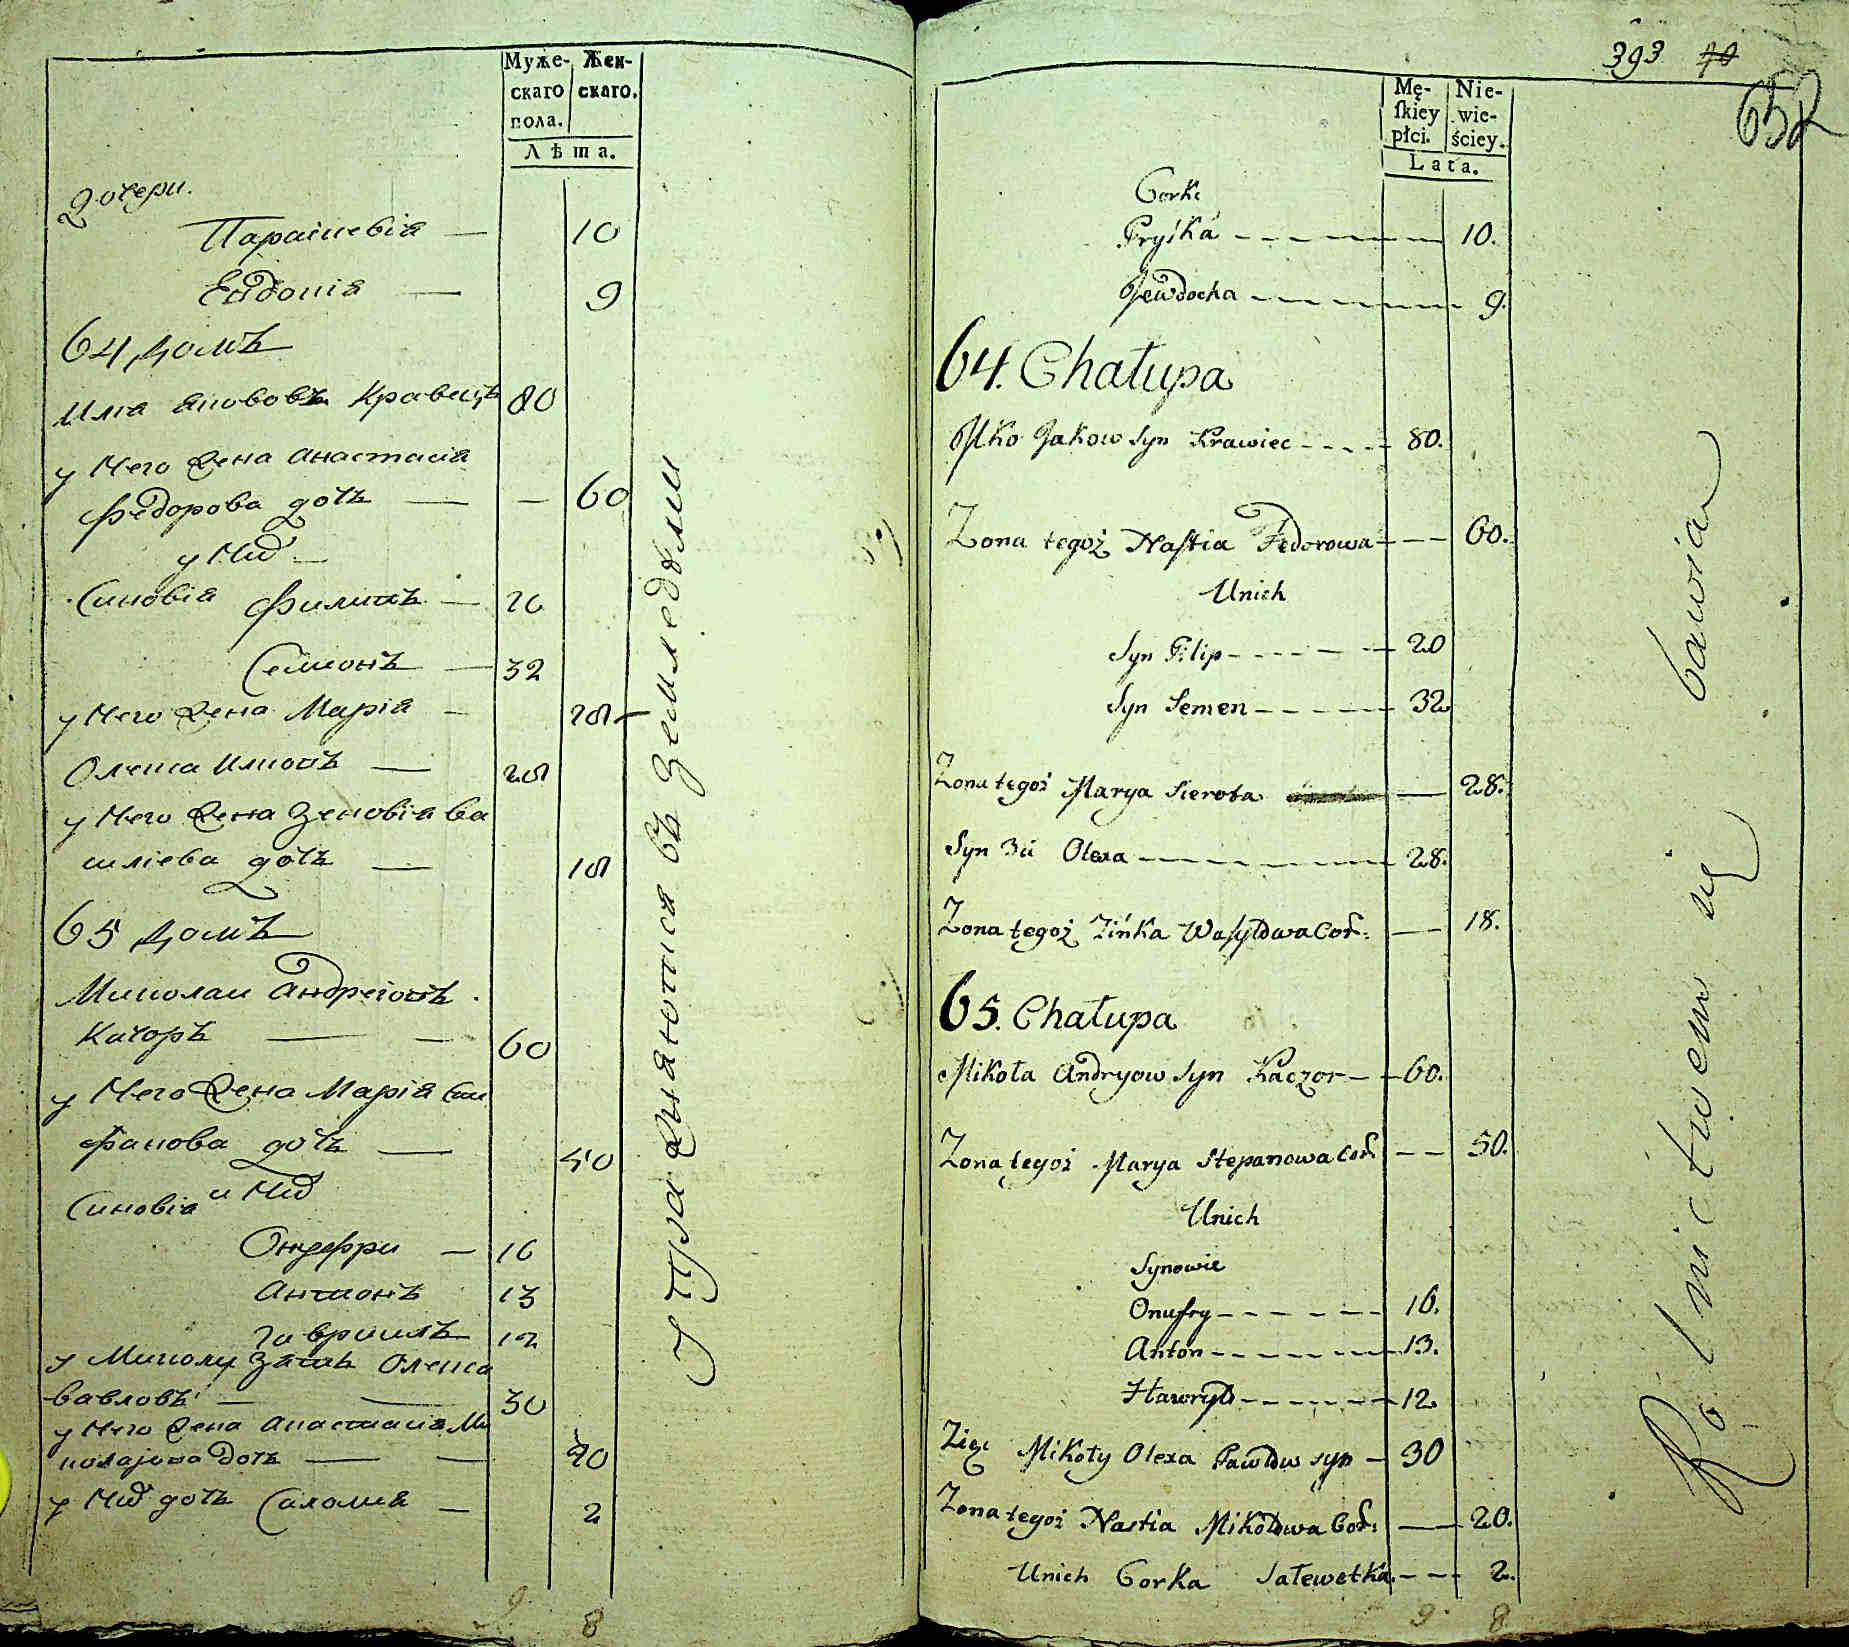 Муже-
скаго
пола.
Жен-
скаго.
Лѣта.
Дочери.
Параскевія — 10
Евдокія — 9
64 домъ
Илко Якововъ Кравецъ 80
у него жена Анастасія
Федорова дочъ — — 60
у них —
Синовія Филипъ — 20
Семионъ — 32
у него жена Марія — 28
Олекса Илковъ — 28
у него жена Зеновія Ва
силіева дочъ — 18
65 домъ
Николаи Андреіовъ
Качоръ — — 60
у него жена Марія Сте
фанова дочъ — 50
Синовія у них
Онуфри — 16
Антонъ 13
Гавриилъ 12
у Николи зять Олекса
Павловъ — — 30
у него жена Анастасія Ни
колаіова дочъ — — 20
у них дочъ Саломия — 2
9 8
упражняются въ земледѣліи
393 40
652
Mę-
skiey
płci.
Nie-
wie-
ściey.
Lata.
Corki
Pryśka - - - - - 10.
Jewdocha - - - - - 9.
64. Chałupa
Jlko Jakow Syn Krawiec - - - - 80.
Zona tegoż Nastia Fedorowa - - - 60.
Unich
Syn Filip - - - - - 20
Syn Semen - - - - - 32
Zona tegoż Marya Sierota — 28.
Syn 3ci Olexa - - - - - 28.
Zona tegoż Zińka Wasylowa Cor: — 18.
65. Chałupa
Mikoła Andryow Syn Kaczor - - 60.
Zona tegoż Marya Stepanowa Cor - - 50.
Unich
Synowie
Onufry - - - - - 16.
Anton - - - - - 13.
Hawryło - - - - - 12
Zięć Mikoły Olexa Pawłow syn - 30
Zona tegoż Nastia Mikołowa Cor: — 20.
Unich Corka Sałewetka - - - 2.
9 8
Rolnictwem się bawia